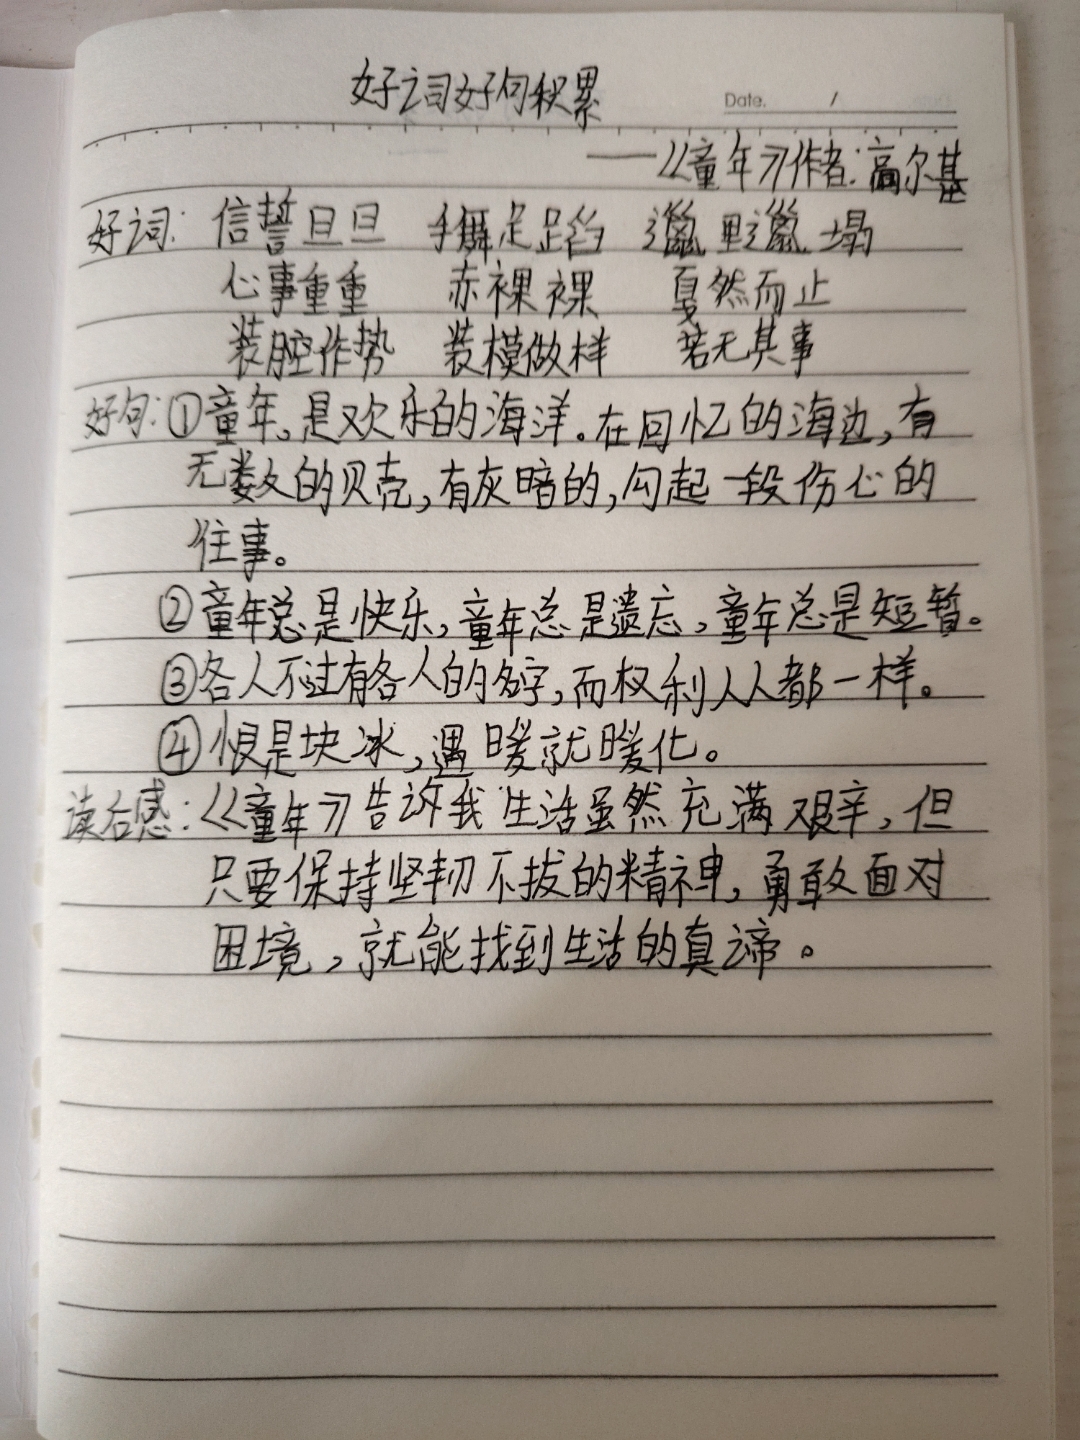 好词好句积累
Date. /
——《童年》作者:高尔基
好词: 信誓旦旦 手舞足蹈 邋里邋塌
心事重重 赤裸裸 戛然而止
装腔作势 装模做样 若无其事
好句:①童年,是欢乐的海洋。在回忆的海边,有
无数的贝壳,有灰暗的,勾起一段伤心的
往事。
②童年总是快乐,童年总是遗忘,童年总是短暂。
③各人不过有各人的名字,而权利人人都一样。
④恨是块冰,遇暖就暖化。
读后感:《童年》告诉我生活虽然充满艰辛,但
只要保持坚韧不拔的精神,勇敢面对
困境,就能找到生活的真谛。